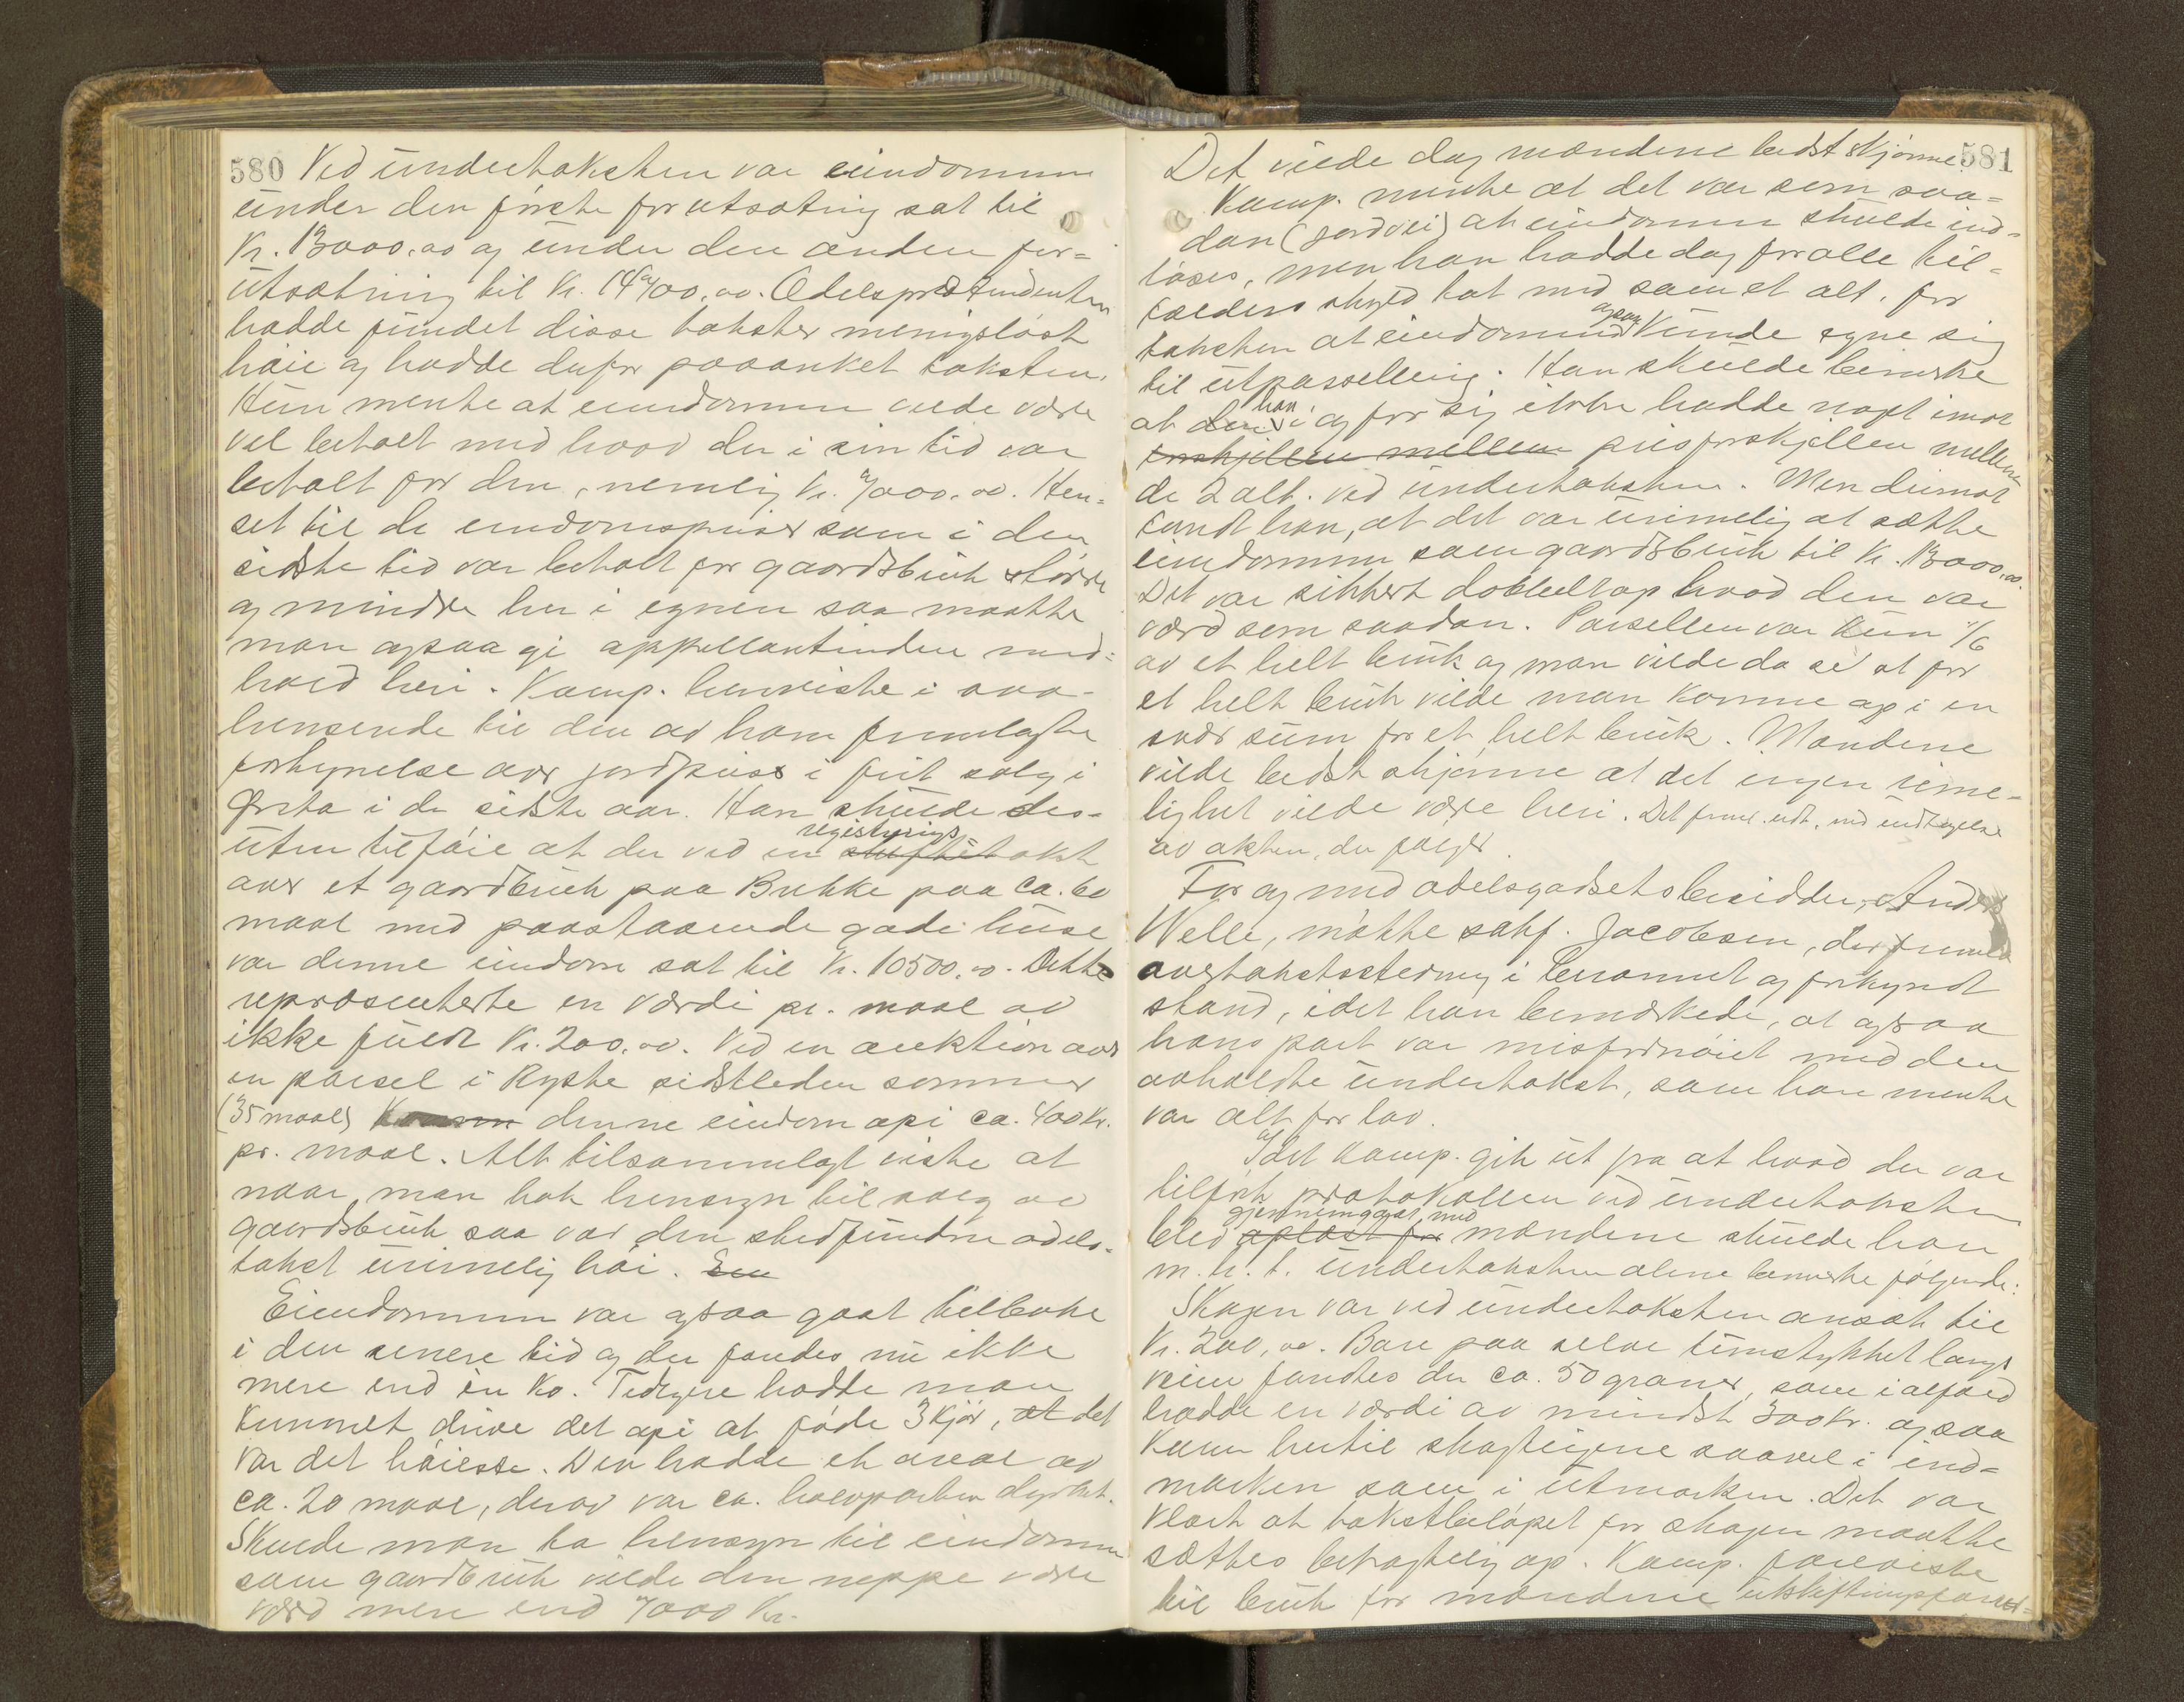 580 Ved undertaksten var eiendommen
under den første forutsætning sat til
Kr. 13000.00 og under den anden for-
utsætning til Kr. 14400.00. Odelsprætendenten
hadde fundet disse takster meningsløst
høie og hadde derfor paaanket taksten.
Hun mente at eiendommen vilde være
vel betalt med hvad der i sin tid var
betalt for den, nemlig Kr. 7000.00. Hen-
set til de eiendomspriser som i den
sidste tid var betalt for gaardsbruk større
og mindre her i egnen saa maatte
man ogsaa gi appellantinden med-
hold heri. Kamp. henviste i saa-
henseende til den av ham fremlagte
fortegnelse over jordpriser i frit salg i
Ørsta i de sidste aar. Han skulde des-
uten tilføie at der ved en skifte takst
registrerings-
over et gaardbruk paa Brekke paa ca. 60
maal med paastaaende gode huse
var denne eiendom sat til Kr. 10500.00. Dette
repræsenterte en værdi pr. maal av
ikke fuldt Kr. 200.00. Ved en auktion over
en parsel i Ryste sidstleden sommer
(35 maal) kom denne eiendom op i ca. 400 Kr.
pr. maal. Alt tilsammenlagt viste at
naar man tok hensyn til salg av
gaardsbruk saa var den stedfundne odels-
takst urimelig høi. Em
Eiendommen var ogsaa gaat tilbake
i den senere tid og der fandes nu ikke
mere end en ko. Tidligere hadde man
kunnet drive det op i at føde 3 kjør, at det
var det høieste. Den hadde et areal av
ca. 20 maal, derav var ca. halvparten dyrket.
Skulde man ta hensyn til eiendommen
som gaardbruk vilde den neppe være
værd mere end 7000 Kr.
Det vilde dog mændene bedst skjønne. 581
Kamp. mente at det var som saa-
dan (jordvei) at eiendommen skulde ind-
løses, men han hadde dog for alle til-
fælders skyld tat med som et alt. for
taksten at eiendommen ogsaa kunde egne sig
til utparsellering. Han skulde bemerke
at den han i og for sig ikke hadde noget imot
forskjellen mellem prisforskjellen mellem
de 2 alt. ved undertaksten. Men derimot
fandt han, at det var urimelig at sætte
eiendommen som gaardsbruk til Kr. 13000.00.
Det var sikkert dobbelt op hvad den var
værd som saadan. Parsellen var kun 1/6
av et helt bruk og man vilde da se at for
et helt bruk vilde man komme op i en
svær sum for et helt bruk. Mændene
vilde bedst skjønne at det ingen rime-
lighet vilde være heri. Det frem. udt. med undtagelse
av akten, der følger.
For og med odelsgodsets besidder, Anders
Welle, møtte sakf. Jacobsen, der fremla
overtakststevning i berammet og forkyndt
stand, idet han bemerkede, at ogsaa
hans part var misfornøiet med den
avholdte undertakst, som han mente
var alt for lav.
Idet kamp. gik ut fra at hvad der var
tilført protokollen ved undertaksten
blev oplæst for gjennemgaat med mændene skulde han
m.h.t. undertaksten alene bemerke følgende:
Skogen var ved undertaksten ansat til
Kr. 200,00. Bare paa selve tunstykket langs
veien fandtes der ca. 50 graner, som i alfald
hadde en værdi av mindst 300 Kr. og saa
kom hertil skogteigene saavel i ind-
marken som i utmarken. Det var
klart at takstbeløpet for skogen maatte
sættes betragtelig op. Kamp. foreviste
til bruk for mændene utskiftningsforret-